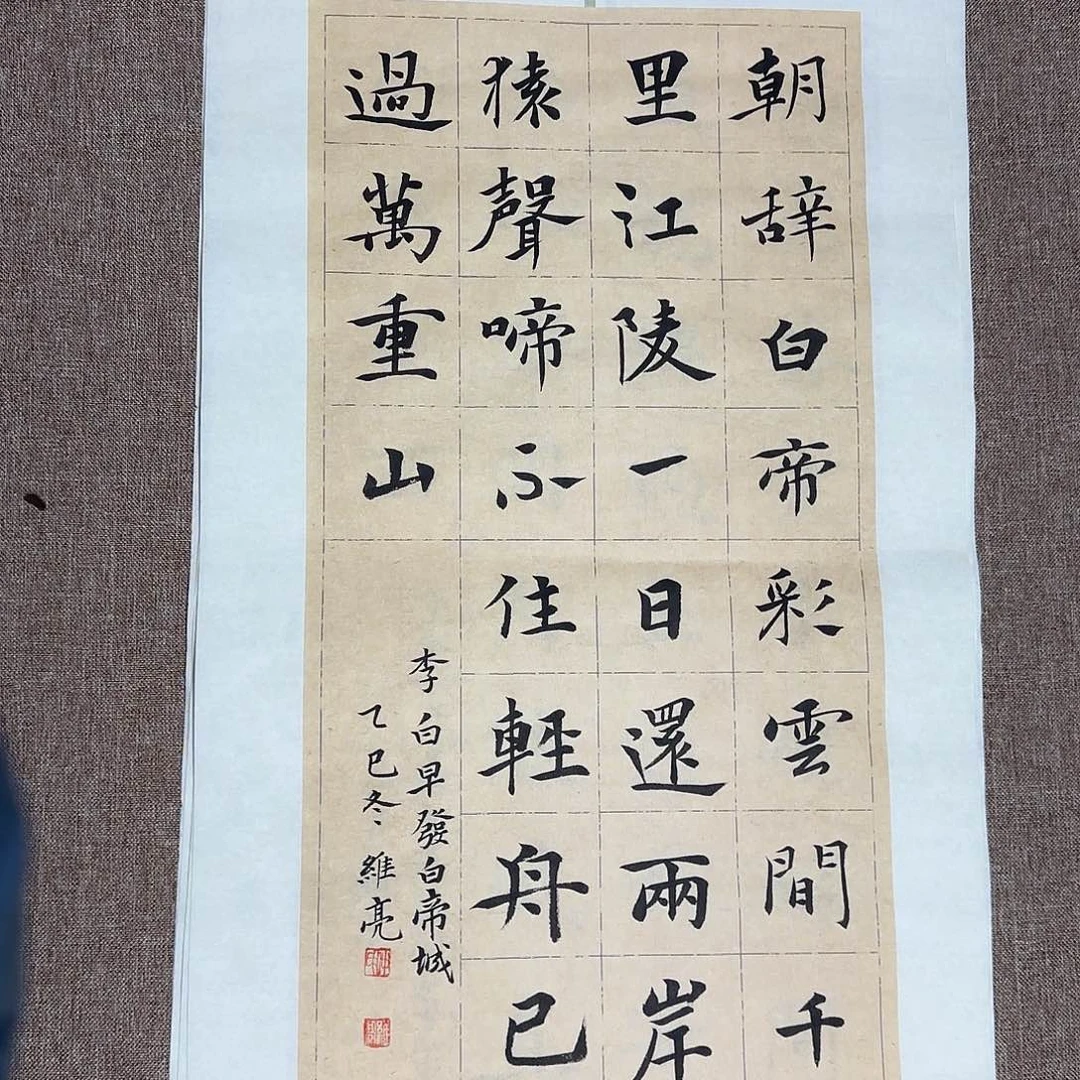 朝辞白帝彩雲間千
里江陵一日還兩岸
猿聲啼不住輕舟已
過萬重山
李白早發白帝城
乙巳冬維亮